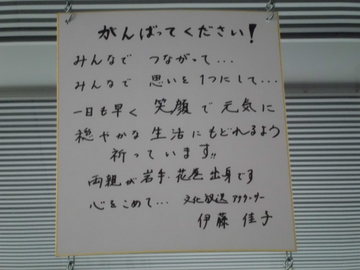 がんばってください!
みんなで つながって...
みんなで 思いを1つにして...
一日も早く 笑顔で元気に
穏やかな生活にもどれるよう
祈っています!!
両親が岩手・花巻出身です
心をこめて... 文化放送アナウンサー
伊藤佳子